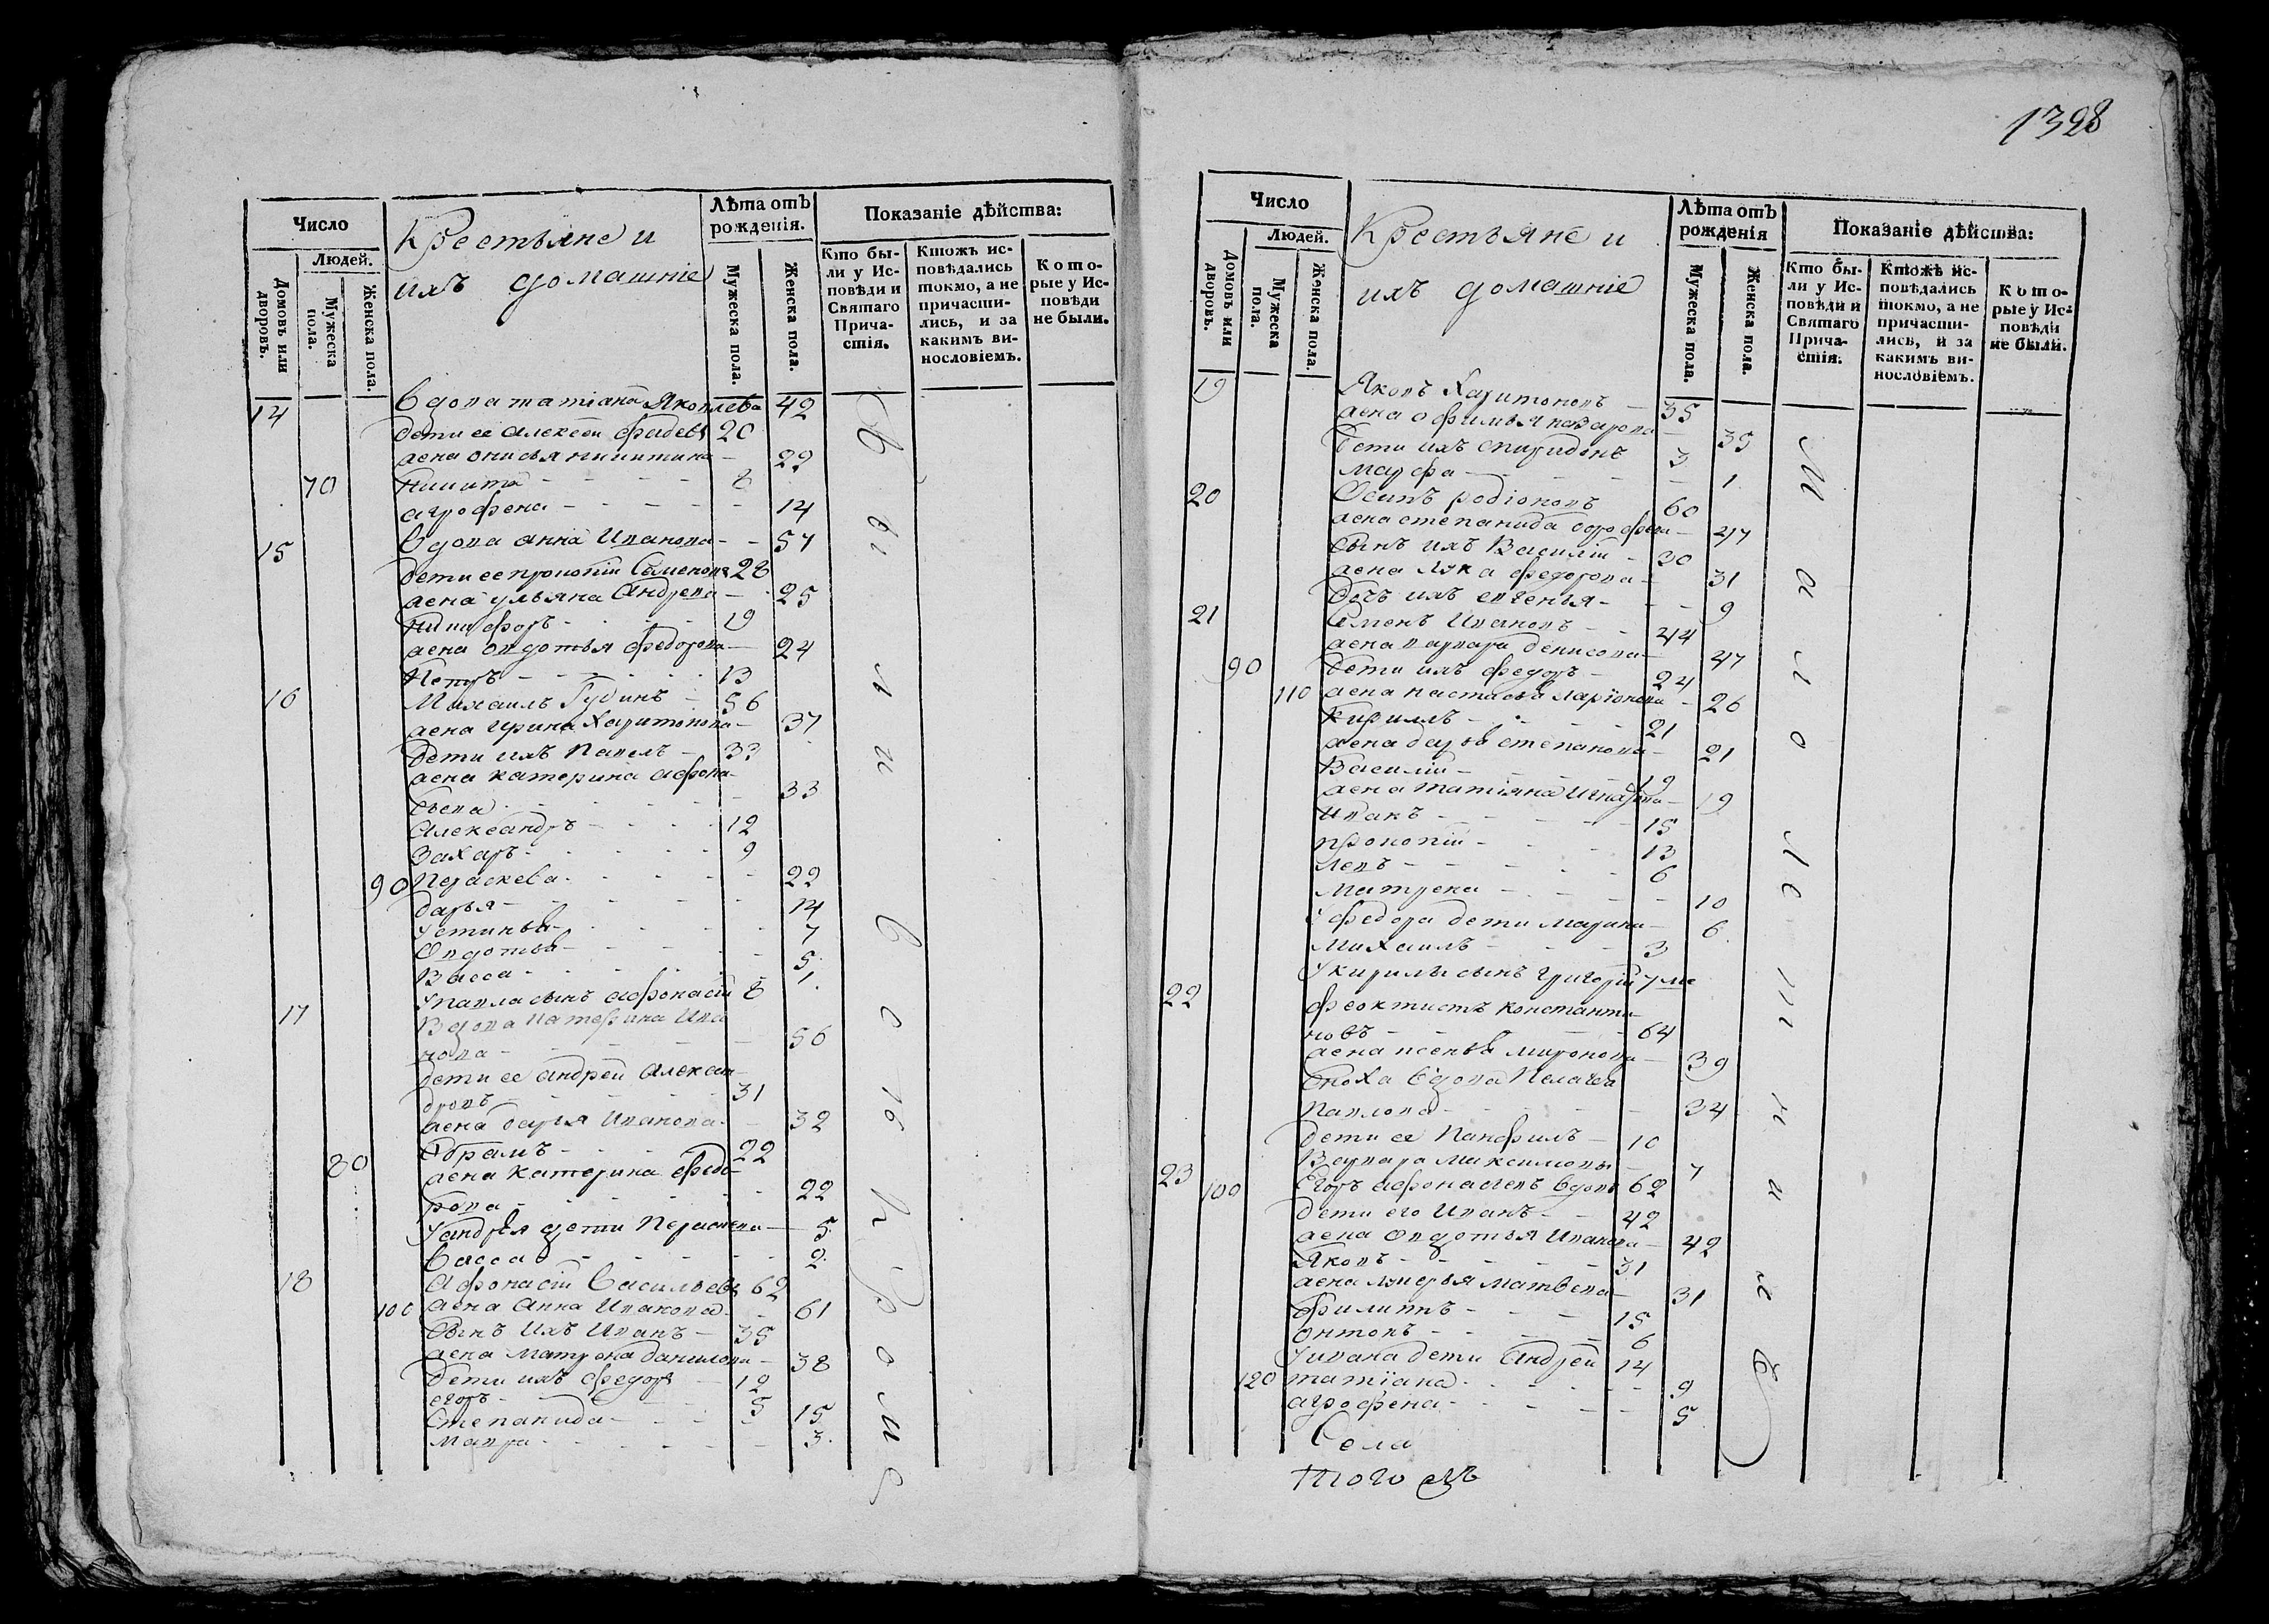 1328
Число
Крестьяне и
ихъ домашніе
Лѣта отъ
рожденія.
Показаніе дѣйства:
Домовъ или
дворовъ.
Людей.
Мужеска
пола.
Женска пола.
Мужеска пола.
Женска пола.
Кто бы-
ли у Ис-
повѣди и
Святаго
Прича-
стія.
Ктожъ ис-
повѣдались
токмо, а не
причасти-
лись, и за
какимъ ви-
нословіемъ.
Кото-
рые у Ис-
повѣди
не были.
14 вдова татіана Яковлева 42
дети ее алексеи фадевъ 20
жена онисья никитина 22
70 никита 8
агрофена 14
15 вдова анна Иванова 57
дети ее прокопій Семеновъ 28
жена ульяна Андрева 25
никифоръ 19
жена овдотья федорова 24
Петръ 13
16 Михаилъ Гудинъ 56
жена ирина Харитонова 37
дети ихъ Павелъ 33
жена катерина афона-
сьева 33
Александръ 12
Захаръ 9
90 Пераскева 22
дарья 14
устинья 7
Овдотья 5
Васса 1
У павла сынъ афонасій 8
17 Вдова катерина Ива
нова 56
дети ее андрей алексан-
дровъ 31
жена дарья Иванова 32
80 Абрамъ 22
жена катерина федо-
рова 22
У андрея дети Пераскева 5
васса 2
18 Афонасій Васильевъ 62
100 жена Анна Иванова 61
Сынъ ихъ Иванъ 35
жена матрена данилова 38
дети ихъ федоръ 12
егоръ 5
Степанида 15
мавра 3
Число
Крестьяне и
ихъ домашніе
Лѣта отъ
рожденія
Показаніе дѣйства:
Домовъ или
дворовъ.
Людей.
Мужеска
пола.
Женска пола.
Мужеска пола.
Женска пола.
Кто бы-
ли у Ис-
повѣди и
Святаго
Прича-
стія.
Ктожъ ис-
повѣдались
токмо, а не
причасти-
лись, и за
какимъ ви-
нословіемъ.
Кото-
рые у Ис-
повѣди
не были.
19 Яковъ Харитоновъ 35
жена офимья назарова 35
дети ихъ спиридонъ 3
марфа 1
20 Осипъ родіоновъ 60
жена степанида 47
Сынъ ихъ Василій 30
жена федорова 31
дочь ихъ евгенья 9
21 Семенъ Ивановъ 44
жена варвара денисова 47
90 дети ихъ федоръ 24
110 жена настасья ларіонова 26
Кирилъ 21
жена дарья степанова 21
Василій 19
жена татіяна 19
Иванъ 15
прокопій 13
левъ 6
матрена 10
У федора дети марина 6
михаилъ 3
У кирилы сынъ григорій 7 ме
22 феоктистъ константи-
новъ 64
жена ксенья миронова 39
Сноха вдова Пелагея
Павлова 34
дети ее Панфилъ 10
Варвара максимовы 7
23 100 Егоръ афонасьевъ вдовъ 62
дети его Иванъ 42
жена овдотья Иванова 42
Яковъ 31
жена матвева 31
филиппъ 15
онтонъ 6
У ивана дети андрей 14
120 татіана 9
агрофена 5
Села
того жъ